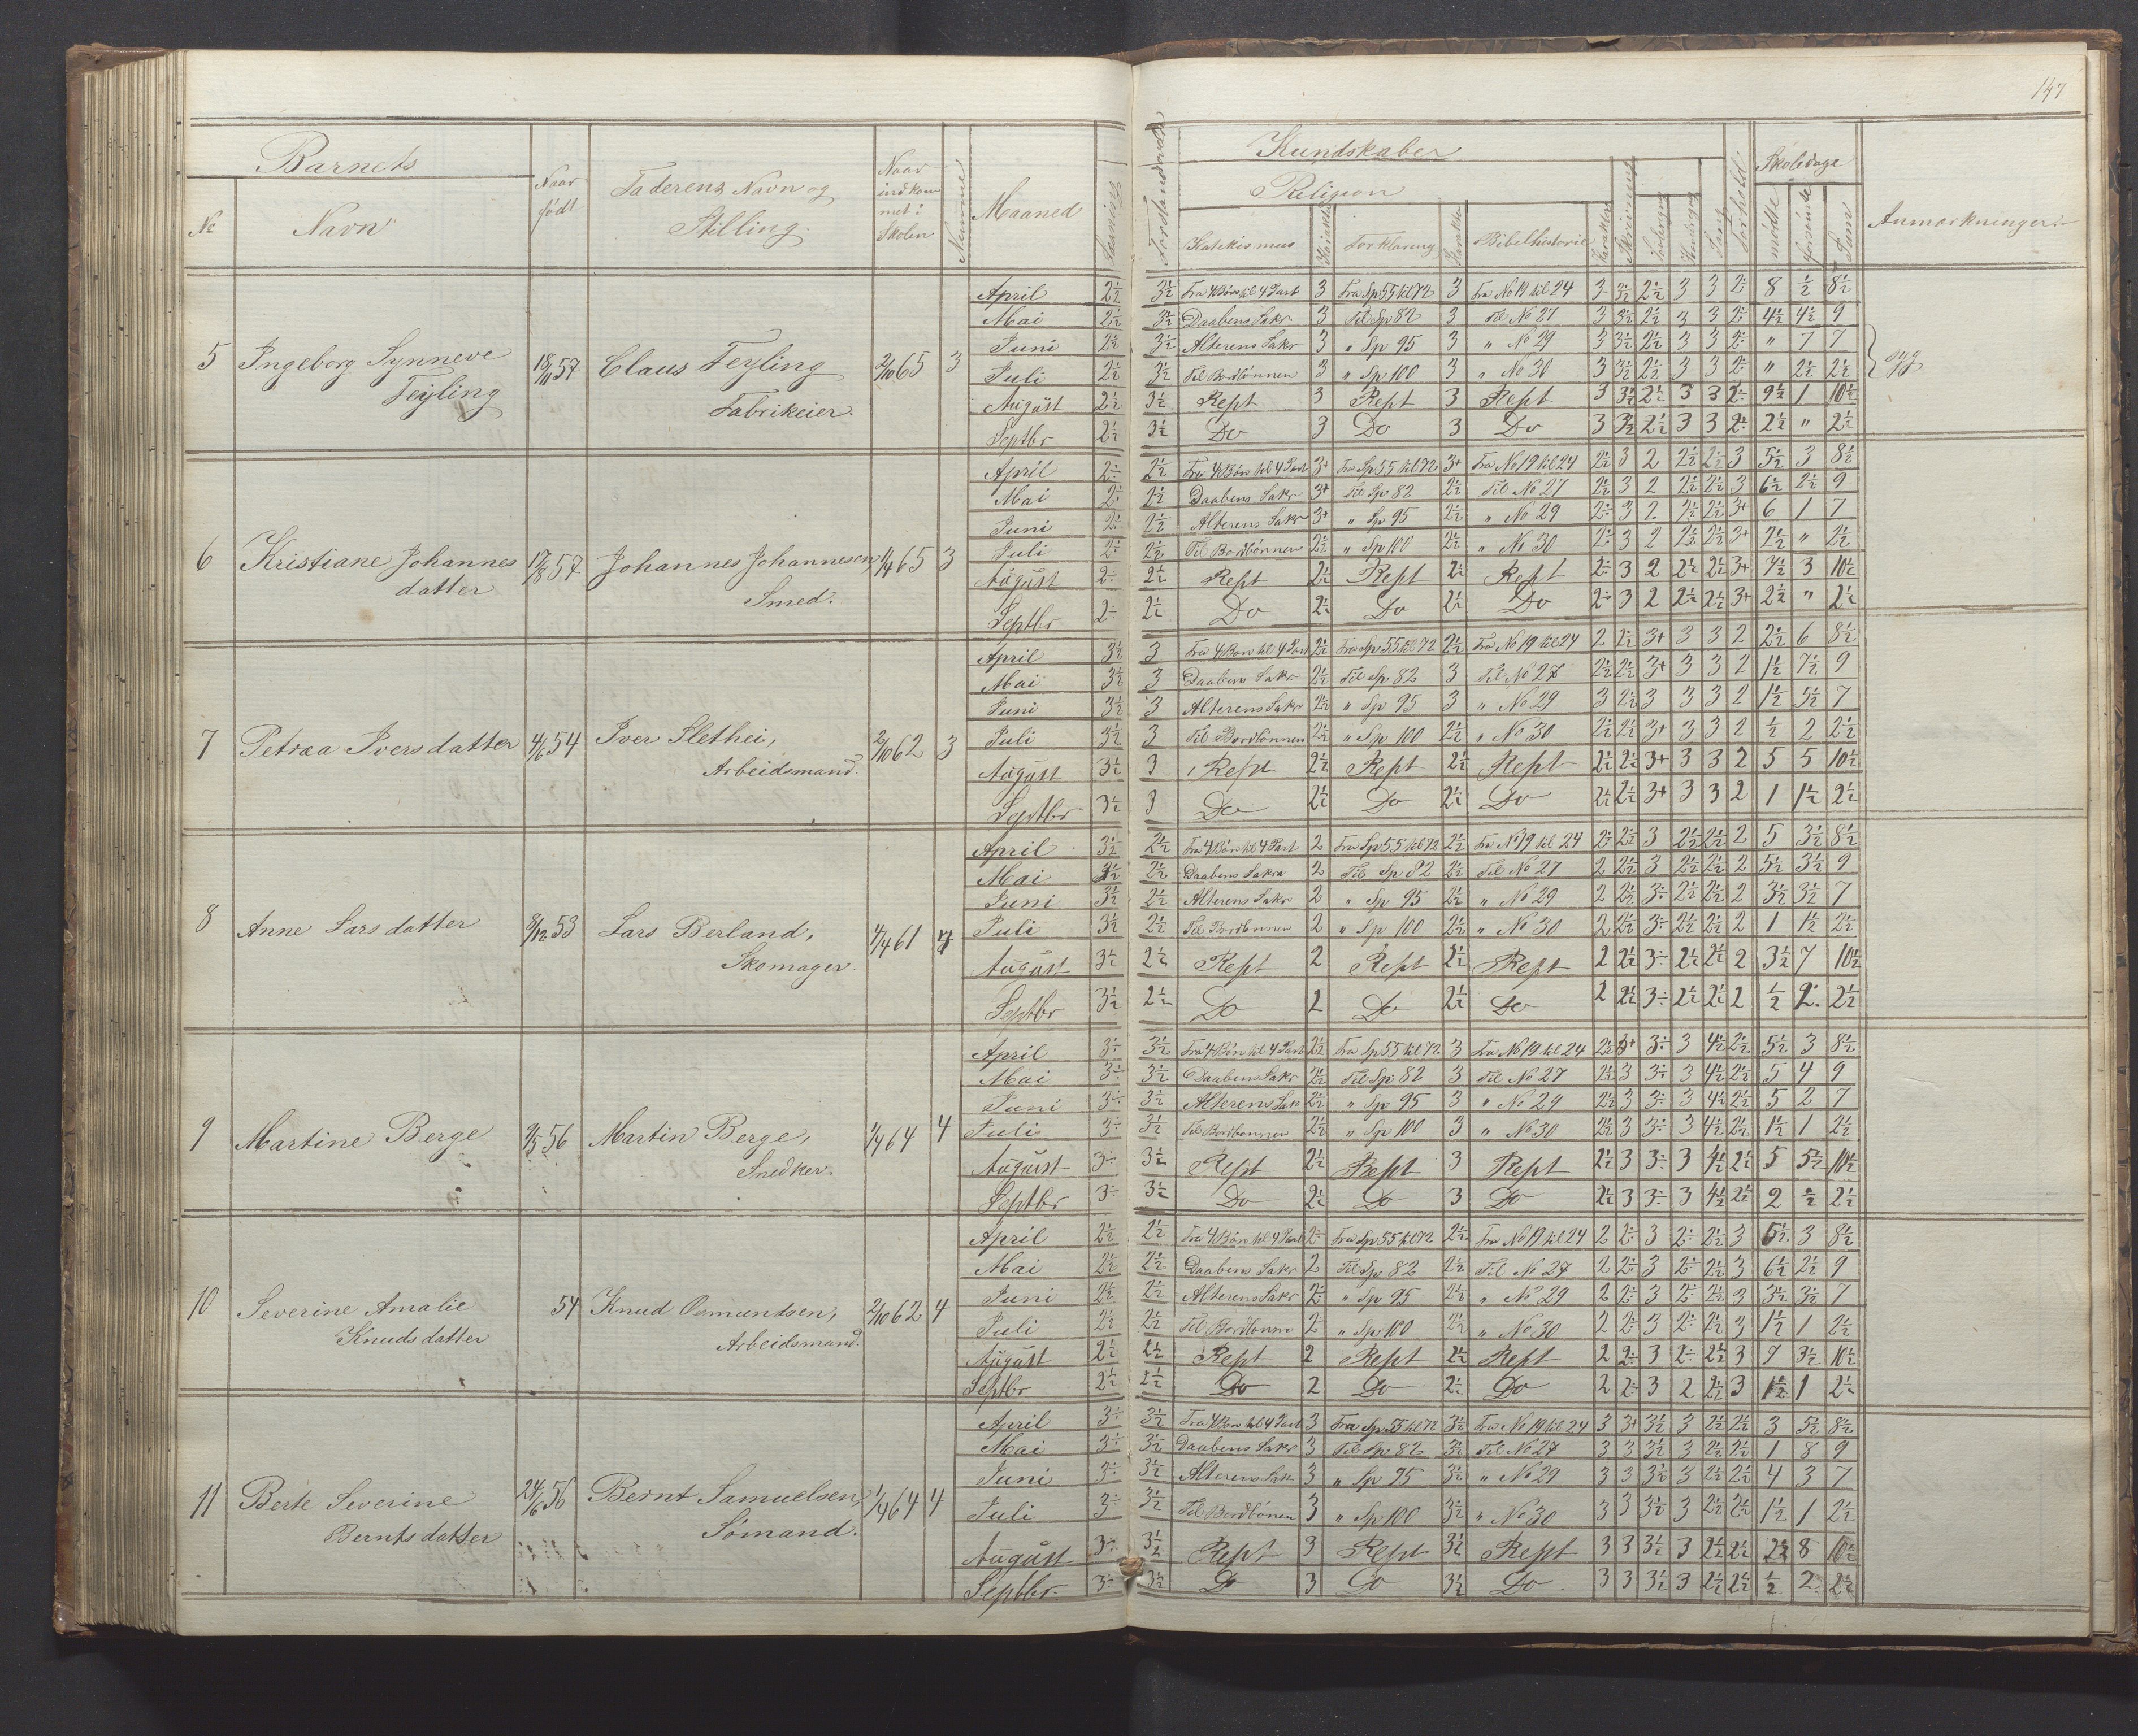 147
Barnets
No
Navn
Naar født
Faderens Navn og Stilling
Naar indkommet i Skolen
Nemme
Maaned
Læsning
Forstandsøvelse
Kundskaber
Religion
Katekismus
Karakter
Forklaring
Karakter
Bibelhistorie
Karakter
Skrivning
Sang
Forhold
Skoledage
mødte
forsømte
Sum
Anmærkninger
5 Ingeborg Synneve Feyling 18/11 57 Claus Feyling Fabrikeier. 2/10 65 3
April 2½ 3½ Fra 4 Bøn til 4 Part 3 Fra Sp 55 til 72 3 Fra No 19 til 24 3 3½ 2½ 3 3 2÷ 8 ½ 8½
Mai 2½ 3½ Daabens Sakr 3 Til Sp 82 3 Til No 27 3 3½ 2½ 3 3 2÷ 4½ 4½ 9
Juni 2½ 3½ Alterens Sakr 3 " Sp 95 3 " No 29 3 3½ 2½ 3 3 2÷ " 7 7
syg
Juli 2½ 3½ Til Bordbønnen 3 " Sp 100 3 " No 30 3 3½ 2½ 3 3 2÷ " 2½ 2½
August 2½ 3½ Rept 3 Rept 3 Rept 3 3½ 2½ 3 3 2÷ 9½ 1 10½
Septbr 2½ 3½ Do 3 Do 3 Do 3 3½ 2½ 3 3 2÷ 2½ " 2½
6 Kristiane Johannesdatter 17/8 57 Johannes Johannesen Smed. 1/4 65 3
April 2÷ 2½ Fra 4 Bøn til 4 Part 3+ Fra Sp 55 til 72 3+ Fra No 19 til 24 2½ 3 2 2½ 2½ 3 5½ 3 8½
Mai 2÷ 2½ Daabens Sakr 3+ Til Sp 82 2½ Til No 27 2½ 3 2 2½ 2½ 3 6½ 2½ 9
Juni 2÷ 2½ Alterens Sakr 3+ " Sp 95 2½ " No 29 2÷ 3 2 2½ 2½ 3+ 6 1 7
Juli 2÷ 2½ Til Bordbønnen 2½ " Sp 100 2½ " No 30 2÷ 3 2 2½ 2½ 3+ 2½ " 2½
August 2÷ 2½ Rept 2½ Rept 2½ Rept 2÷ 3 2 2½ 2½ 3+ 7½ 3 10½
Septbr 2÷ 2½ Do 2½ Do 2½ Do 2÷ 3 2 2½ 2½ 3+ 2½ " 2½
7 Petraa Iversdatter 4/6 54 Iver Slethei, Arbeidsmand. 2/10 62 3
April 3½ 3 Fra 4 Bøn til 4 Part 2½ Fra Sp 55 til 72 2½ Fra No 19 til 24 2 2½ 3+ 3 3 2 2½ 6 8½
Mai 3½ 3 Daabens Sakr 2½ Til Sp 82 3 Til No 27 2½ 2½ 3+ 3 3 2 1½ 7½ 9
Juni 3½ 3 Alterens Sakr 2½ " Sp 95 3 " No 29 3 2½ 3 3 3 2 1½ 5½ 7
Juli 3½ 3 Til Bordbønnen 2½ " Sp 100 2½ " No 30 2½ 2½ 3+ 3 3 2 ½ 2 2½
August 3½ 3 Rept 2½ Rept 2½ Rept 2½ 2½ 3+ 3 3 2 5 5 10½
Septbr 3½ 3 Do 2½ Do 2½ Do 2½ 2½ 3+ 3 3 2 1 1½ 2½
8 Anne Larsdatter 8/12 53 Lars Berland, Skomager. 4/4 61
April 3½ 2½ Fra 4 Bøn til 4 Part 2 Fra Sp 55 til 72 2½ Fra No 19 til 24 2÷ 2½ 3 2½ 2½ 2 5 3½ 8½
Mai 3½ 2½ Daabens Sakra 2 Til Sp 82 2½ Til No 27 2 2½ 3 2½ 2½ 2 5½ 3½ 9
Juni 3½ 2½ Alterens Sakr 2 " Sp 95 2½ " No 29 2 2½ 3÷ 2½ 2½ 2 3½ 3½ 7
Juli 3½ 2½ Til Bordbønnen 2 " Sp 100 2½ " No 30 2 2½ 3÷ 2½ 2½ 2 1 1½ 2½
August 3½ 2½ Rept 2 Rept 2½ Rept 2 2½ 3÷ 2½ 2½ 2 3½ 7 10½
Septbr 3½ 2½ Do 2 Do 2½ Do 2 2½ 3÷ 2½ 2½ 2 ½ 2 2½
9 Martine Berge 9/5 56 Martin Berge, Snedker. 1/4 64 4
April 3÷ 3½ Fra 4 Bøn til 4 Part 2½ Fra Sp 55 til 72 3 Fra No 19 til 24 2½ 3+ 3÷ 3 4½ 2½ 5½ 3 8½
Mai 3÷ 3½ Daabens Sakr 2½ Til Sp 82 3 Til No 27 2½ 3 3÷ 3 4½ 2½ 5 4 9
Juni 3÷ 3½ Alterens Sak 2½ " Sp 95 3 " No 29 2½ 3 3÷ 3 4½ 2½ 5 2 7
Juli 3÷ 3½ Til Bordbønnen 2½ " Sp 100 3 " No 30 2½ 3 3÷ 3 4½ 2½ 1½ 1 2½
August 3÷ 3½ Rept 2½ Rept 3 Rept 2½ 3 3÷ 3 4½ 2½ 5 5½ 10½
Septbr 3÷ 3½ Do 2½ Do 3 Do 2½ 3 3÷ 3 4½ 2½ 2 ½ 2½
10 Severine Amalie Knudsdatter 54 Knud Osmundsen, Arbeidsmand. 2/10 62 4
April 2½ 2½ Fra 4 Bøn til 4 Part 2÷ Fra Sp 55 til 72 2½ Fra No 19 til 24 2 2÷ 3 2÷ 2½ 3 5½ 3 8½
Mai 2½ 2½ Daabens Sakr 2 Til Sp 82 2½ Til No 27 2 2÷ 3 2÷ 2½ 3 6½ 2½ 9
Juni 2½ 2½ Alterens Sakr 2÷ " Sp 95 2½ " No 29 2 2÷ 3 2÷ 2½ 3 3½ 3½ 7
Juli 2½ 2½ Til Bordbønne 2 " Sp 100 2½ " No 30 2 2÷ 3 2÷ 2½ 3 1½ 1 2½
August 2½ 2½ Rept 2 Rept 2½ Rept 2 2÷ 3 2÷ 2½ 3 7 3½ 10½
Septbr 2½ 2½ Do 2 Do 2½ Do 2 2÷ 3 2 2½ 3 1½ 1 2½
11 Berte Severine Berntsdatter 24/6 56 Bernt Samuelsen, Sømand. 1/4 64 4
April 3÷ 3½ Fra 4 Bøn til 4 Part 3 Fra Sp 55 til 72 3½ Fra No 19 til 24 3 3+ 3½ 3 2½ 2½ 3 5½ 8½
Mai 3÷ 3½ Daabens Sakr 3 Til Sp 82 3½ Til No 27 3 3 3½ 3 2½ 2½ 1 8 9
Juni 3÷ 3½ Alterens Sak 3 " Sp 95 3½ " No 29 3 3 3½ 3 2½ 2½ 4 3 7
Juli 3÷ 3½ Til Bordbønen 3 " Sp 100 3½ " No 30 3 3 3½ 3 2½ 2½ 1½ 1 2½
August 3÷ 3½ Rept 3 Rept 3½ Rept 3 3 3½ 3 2½ 2½ 2½ 8 10½
Septbr. 3÷ 3½ Do 3 Do 3½ Do 3 3 3½ 3 2½ 2½ ½ 2 2½